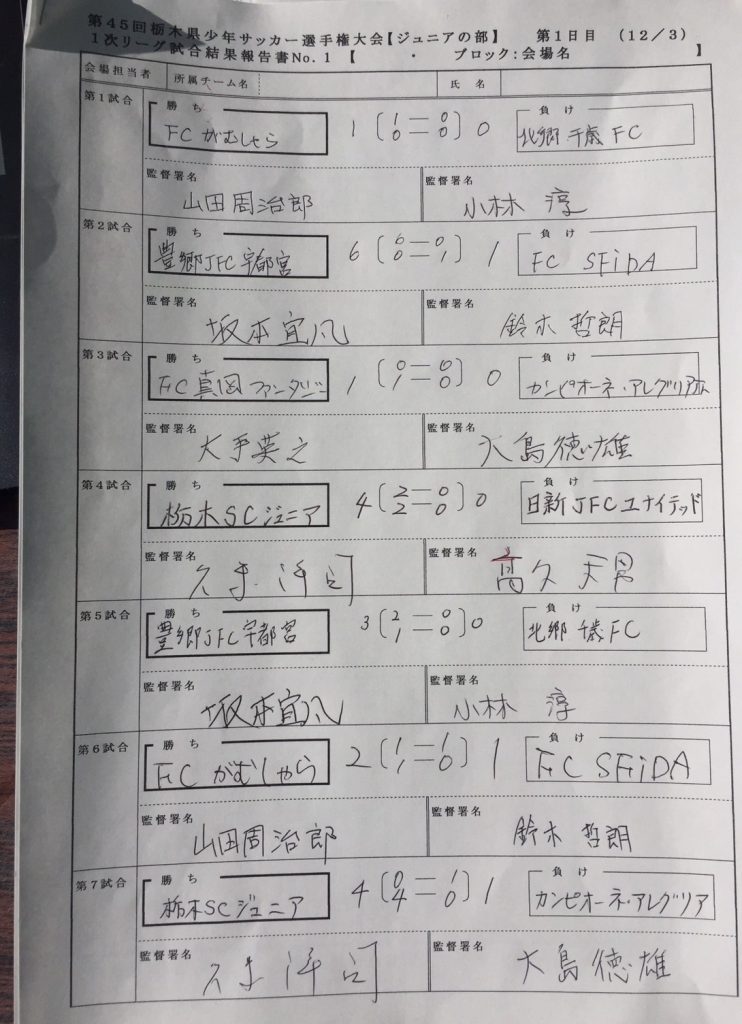 第45回栃木県少年サッカー選手権大会【ジュニアの部】 第1日目 (12/3)
1次リーグ試合結果報告書No.1 【 ・ ブロック:会場名 】
会場担当者 所属チーム名 氏名
第1試合 勝ち 負け
FCがむしゃら 1 (1 0 ー 0 0) 0 北郷千歳FC
監督署名 監督署名
山田周治郎 小林 淳
第2試合 勝ち 負け
豊郷JFC宇都宮 6 (6 0 ー 0 1) 1 FC SFiDA
監督署名 監督署名
坂本宜凡 鈴木 哲朗
第3試合 勝ち 負け
FC真岡ファンタジー 1 (0 1 ー 0 0) 0 カンピオーネ・アレグリア
監督署名 監督署名
大手英之 大島徳雄
第4試合 勝ち 負け
栃木SCジュニア 4 (2 2 ー 0 0) 0 日新JFCユナイテッド
監督署名 監督署名
高久 天男
第5試合 勝ち 負け
豊郷JFC宇都宮 3 (2 1 ー 0 0) 0 北郷千歳FC
監督署名 監督署名
坂本宜凡 小林 淳
第6試合 勝ち 負け
FCがむしゃら 2 (1 1 ー 1 0) 1 FC SFiDA
監督署名 監督署名
山田周治郎 鈴木 哲朗
第7試合 勝ち 負け
栃木SCジュニア 4 (0 4 ー 1 0) 1 カンピオーネ・アレグリア
監督署名 監督署名
大島徳雄